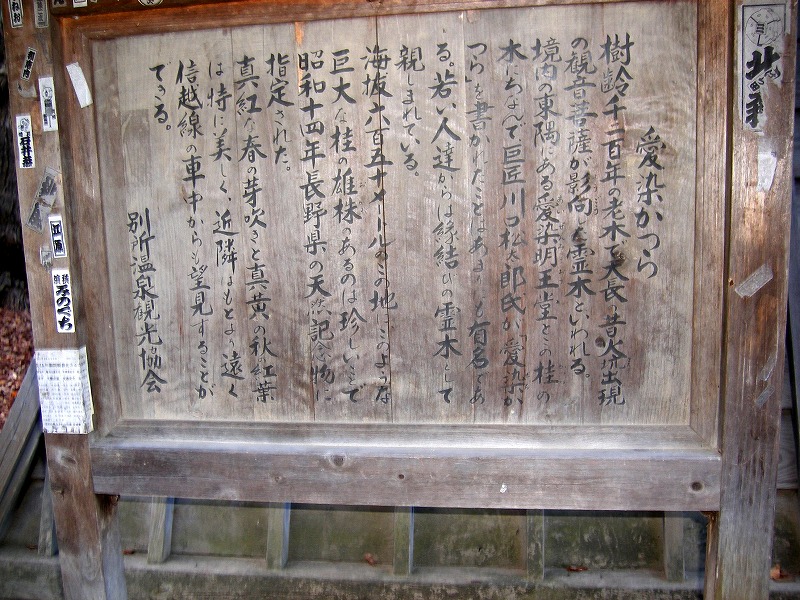 愛染かつら
樹齢千二百年の老木で天長の昔火坑出現
の観音菩薩が影向した霊木といわれる。
境内の東隅にある愛染明王堂とこの桂の
木にちなんで巨匠川口松太郎氏が「愛染か
つら」を書かれたことはあまりにも有名であ
る。若い人達からは縁結びの霊木として
親しまれている。
海抜六百五十メートルのこの地にこのような
巨大な桂の雄株のあるのは珍しいことで
昭和十四年長野県の天然記念物に
指定された。
真紅な春の芽吹きと真黄の秋の紅葉
は特に美しく、近隣はもとより遠く
信越線の車中からも望見することが
できる。
別所温泉観光協会
みのぐち